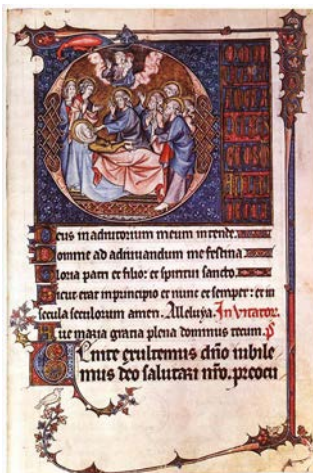 Deus in adiutorium meum intende.
Domine ad adiuuandum me festina
Gloria patri et filio: et spiritui sancto.
Sicut erat in principio et nunc et semper: et in
secula seculorum amen. Alleluya. Inuitator.
Aue maria gratia plena dominus tecum. p
Venite exultemus dño iubile
mus deo salutari nr̃o. preocu